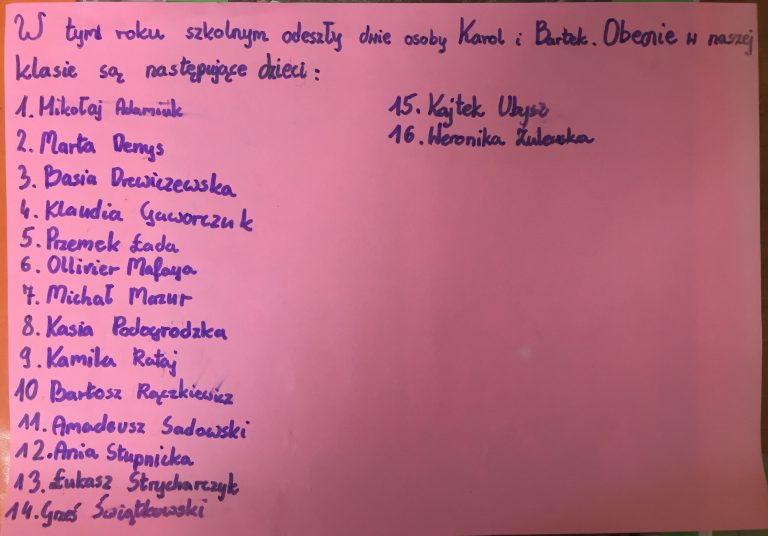 W tym roku szkolnym odeszły dwie osoby Karol i Bartek. Obecnie w naszej
klasie są następujące dzieci:
1. Mikołaj Adamiuk
2. Marta Demys
3. Basia Drewiczewska
4. Klaudia Gaworczuk
5. Przemek Łada
6. Ollivier Mafaya
7. Michał Mazur
8. Kasia Podogrodzka
9. Kamila Rataj
10 Bartosz Rączkiewicz
11. Amadeusz Sadowski
12. Ania Stupnicka
13. Łukasz Strycharczyk
14. Grześ Świątkowski
15. Kajtek Ubysz
16. Weronika Żulewska